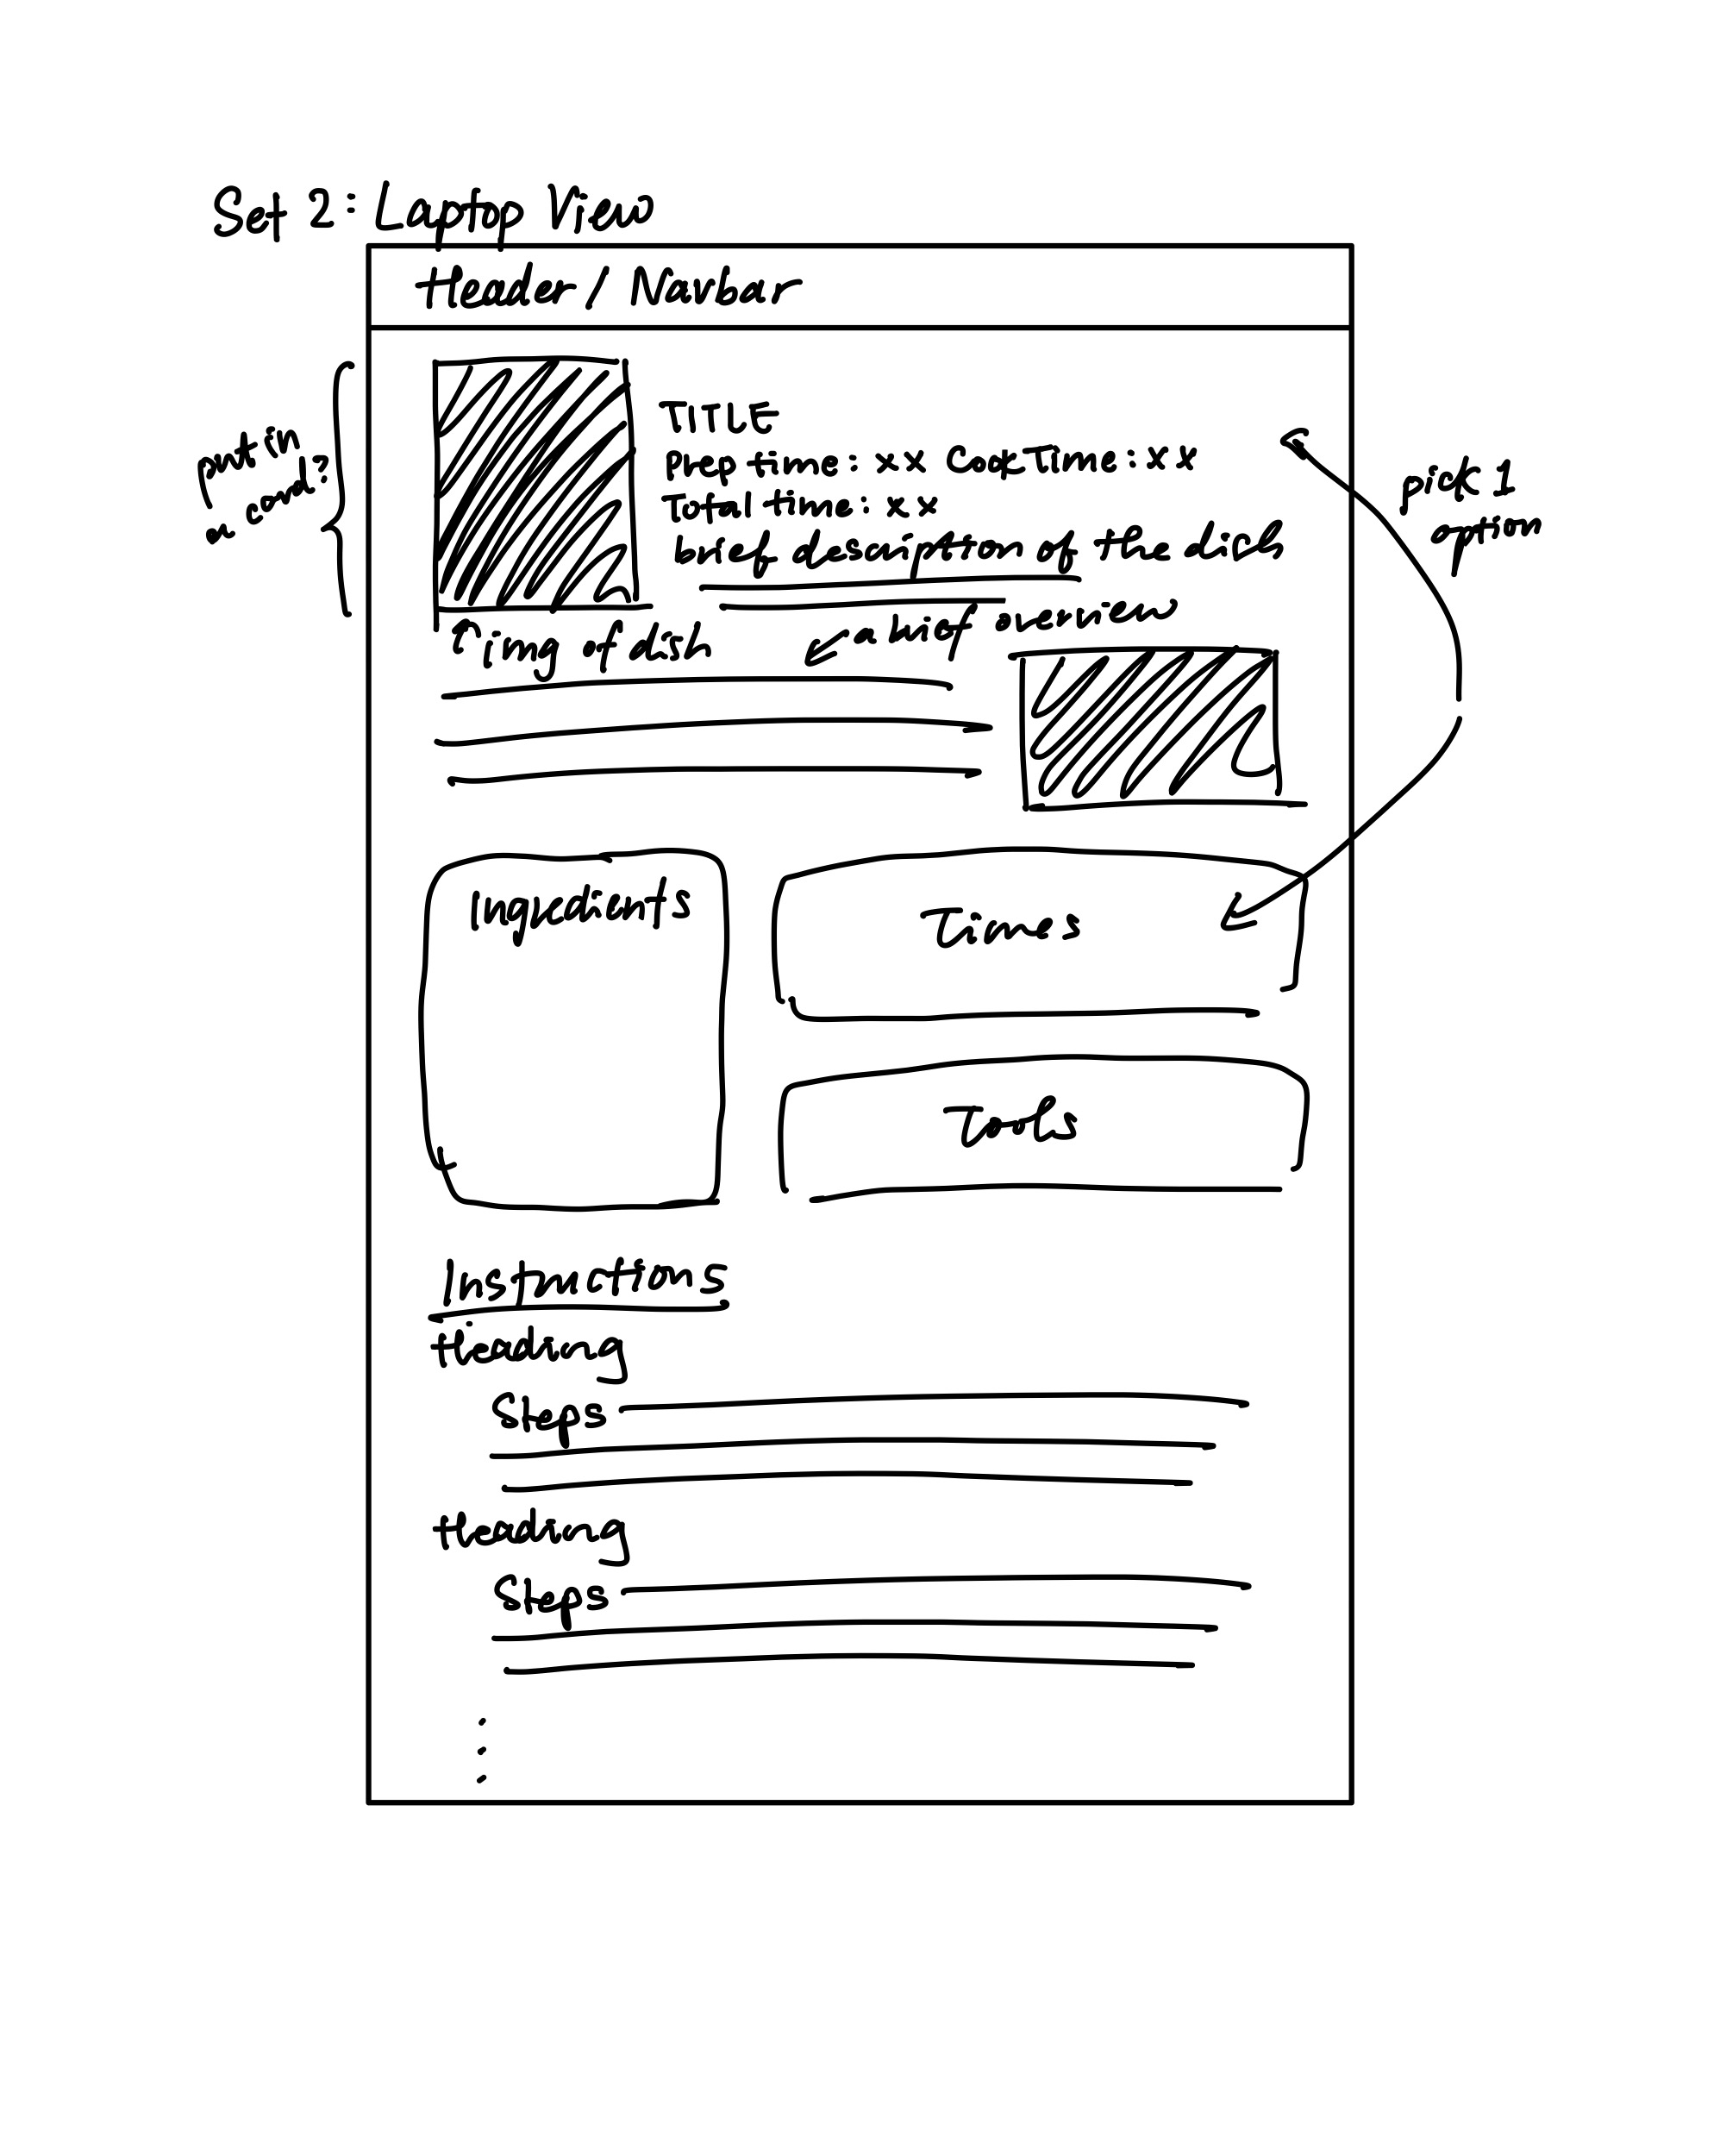 Set 2: Laptop View
Header / Navbar
put in
a card?
TITLE
Prep time: xx Cook Time: xx
Total time: xx
brief description of the dish
pick 1
option
img of dish
a brief overview
Ingredients
Times
Tools
Instructions
Heading
Steps
Heading
Steps